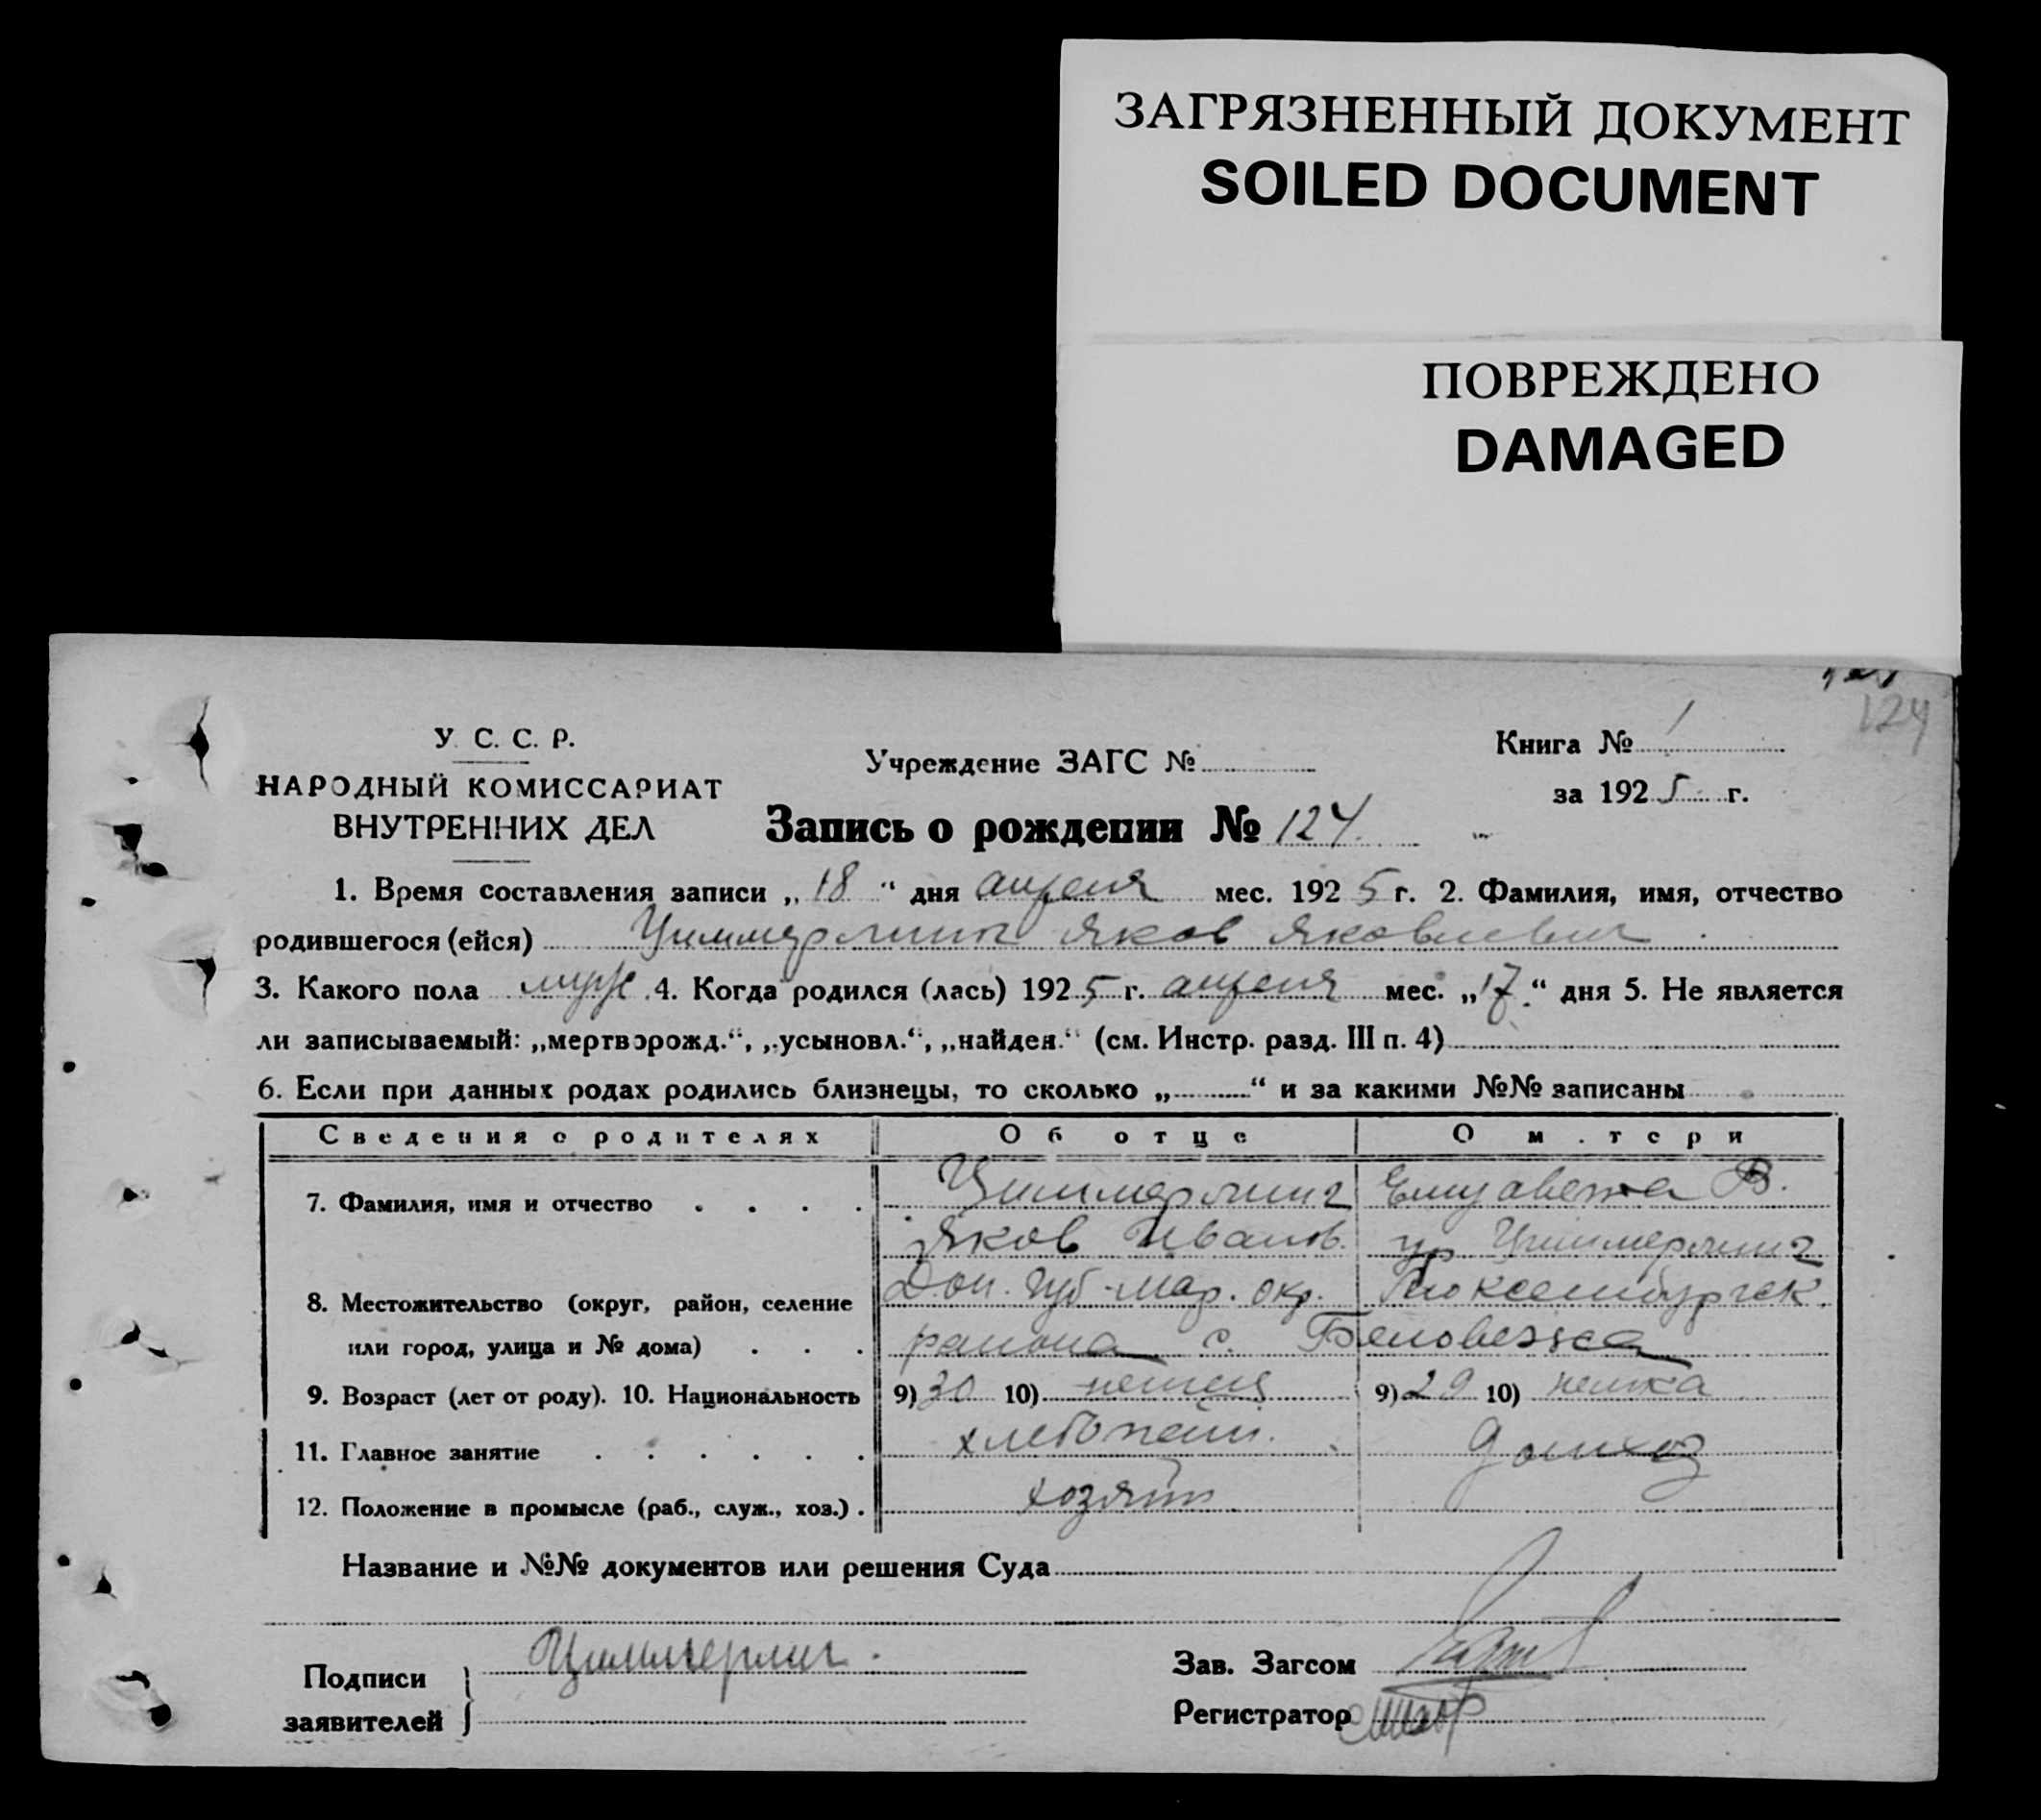 ЗАГРЯЗНЕННЫЙ ДОКУМЕНТ
SOILED DOCUMENT
ПОВРЕЖДЕНО
DAMAGED
124
У. С. С. Р.
НАРОДНЫЙ КОМИССАРИАТ
ВНУТРЕННИХ ДЕЛ
Учреждение ЗАГС №
Книга № 1
за 1925 г.
Запись о рождении № 124
1. Время составления записи „18“ дня апреля мес. 1925 г. 2. Фамилия, имя, отчество
родившегося (ейся) Циммерлинг Яков Яковлевич
3. Какого пола муж. 4. Когда родился (лась) 1925 г. апреля мес. „17“ дня 5. Не является
ли записываемый: „мертворожд.“, „усыновл.“, „найден.“ (см. Инстр. разд. III п. 4)
6. Если при данных родах родились близнецы, то сколько „ “ и за какими №№ записаны
Сведения о родителях Об отце О м.тери
7. Фамилия, имя и отчество Циммерлинг Елизавета В.
Яков Иванов. ур Циммерлинг
Дон. губ. Мар. окр. Люксембургск.
8. Местожительство (округ, район, селение
или город, улица и № дома) района с. Беловежа
9. Возраст (лет от роду). 10. Национальность 9) 30 10) немец 9) 29 10) немка
11. Главное занятие хлебопаш. домхоз
12. Положение в промысле (раб., служ., хоз.) хозяин
Название и №№ документов или решения Суда
Подписи
заявителей
Циммерлинг.
Зав. Загсом
Регистратор